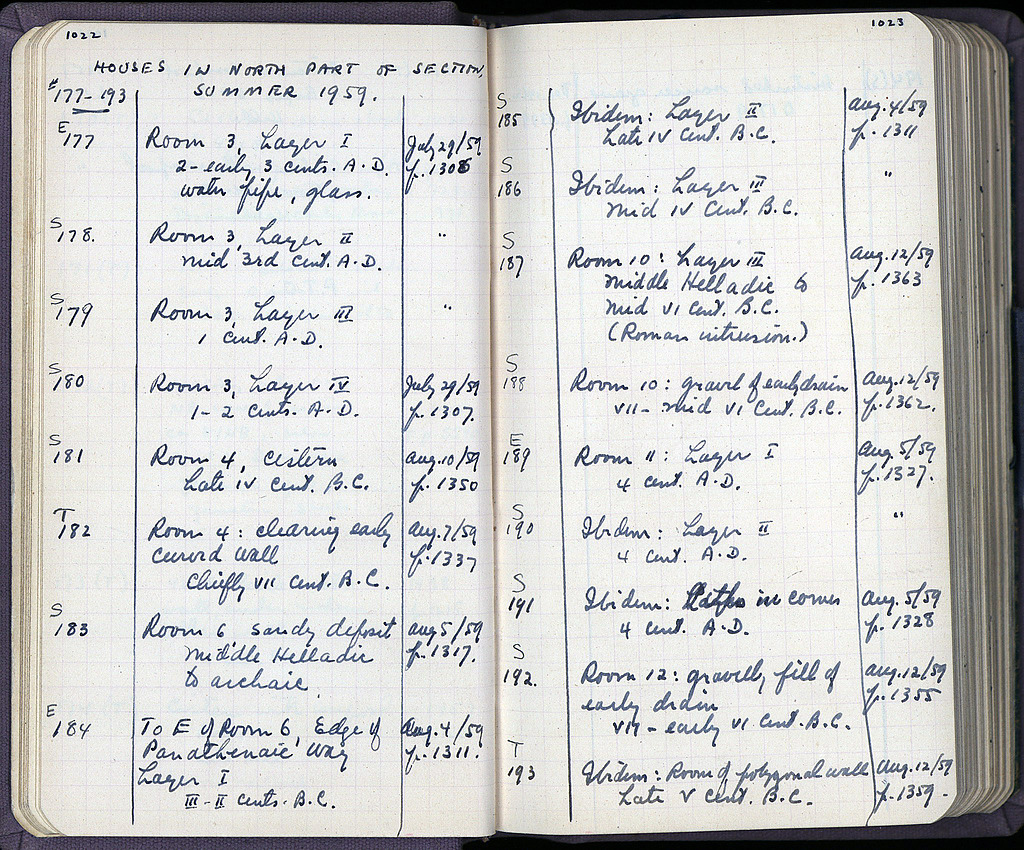 1022
HOUSES IN NORTH PART OF SECTION,
SUMMER 1959.
#177-193
E
177 Room 3, Layer I July 29/59
2-early 3 cents. A.D. p. 1306
water pipe, glass.
S
178. Room 3, Layer II "
mid 3rd cent. A.D.
S
179 Room 3, Layer III "
1 cent. A.D.
S
180 Room 3, Layer IV July 29/59
1-2 cents. A.D. p. 1307.
S
181 Room 4, cistern Aug. 10/59
Late IV cent. B.C. p. 1350
T
182 Room 4: clearing early Aug. 7/59
curved wall p. 1337
chiefly VII cent. B.C.
S
183 Room 6, sandy deposit Aug 5/59
Middle Helladic p. 1317.
to archaic
E
184 To E of Room 6, Edge of Aug. 4/59
Panathenaic Way p. 1311.
Layer I
III-II cents. B.C.
1023
S
185 Ibidem: Layer II Aug. 4/59
Late IV Cent. B.C. p. 1311
S
186 Ibidem: Layer III "
mid IV Cent. B.C.
S
187 Room 10: Layer III Aug. 12/59
Middle Helladic to p. 1363
mid VI cent. B.C.
(Roman intrusion.)
S
188 Room 10: gravel of early drain Aug. 12/59
VII - mid VI Cent. B.C. p. 1362.
E
189 Room 11: Layer I Aug. 5/59
4 cent. A.D. p. 1327.
S
190 Ibidem: Layer II "
4 cent. A.D.
S
191 Ibidem: in corner Aug. 5/59
4 cent. A.D. p. 1328
S
192. Room 12: gravelly fill of Aug. 12/59
early drain p. 1355
VII - early VI cent. B.C.
T
193 Ibidem: Room of polygonal wall Aug. 12/59
Late V cent. B.C. p. 1359.